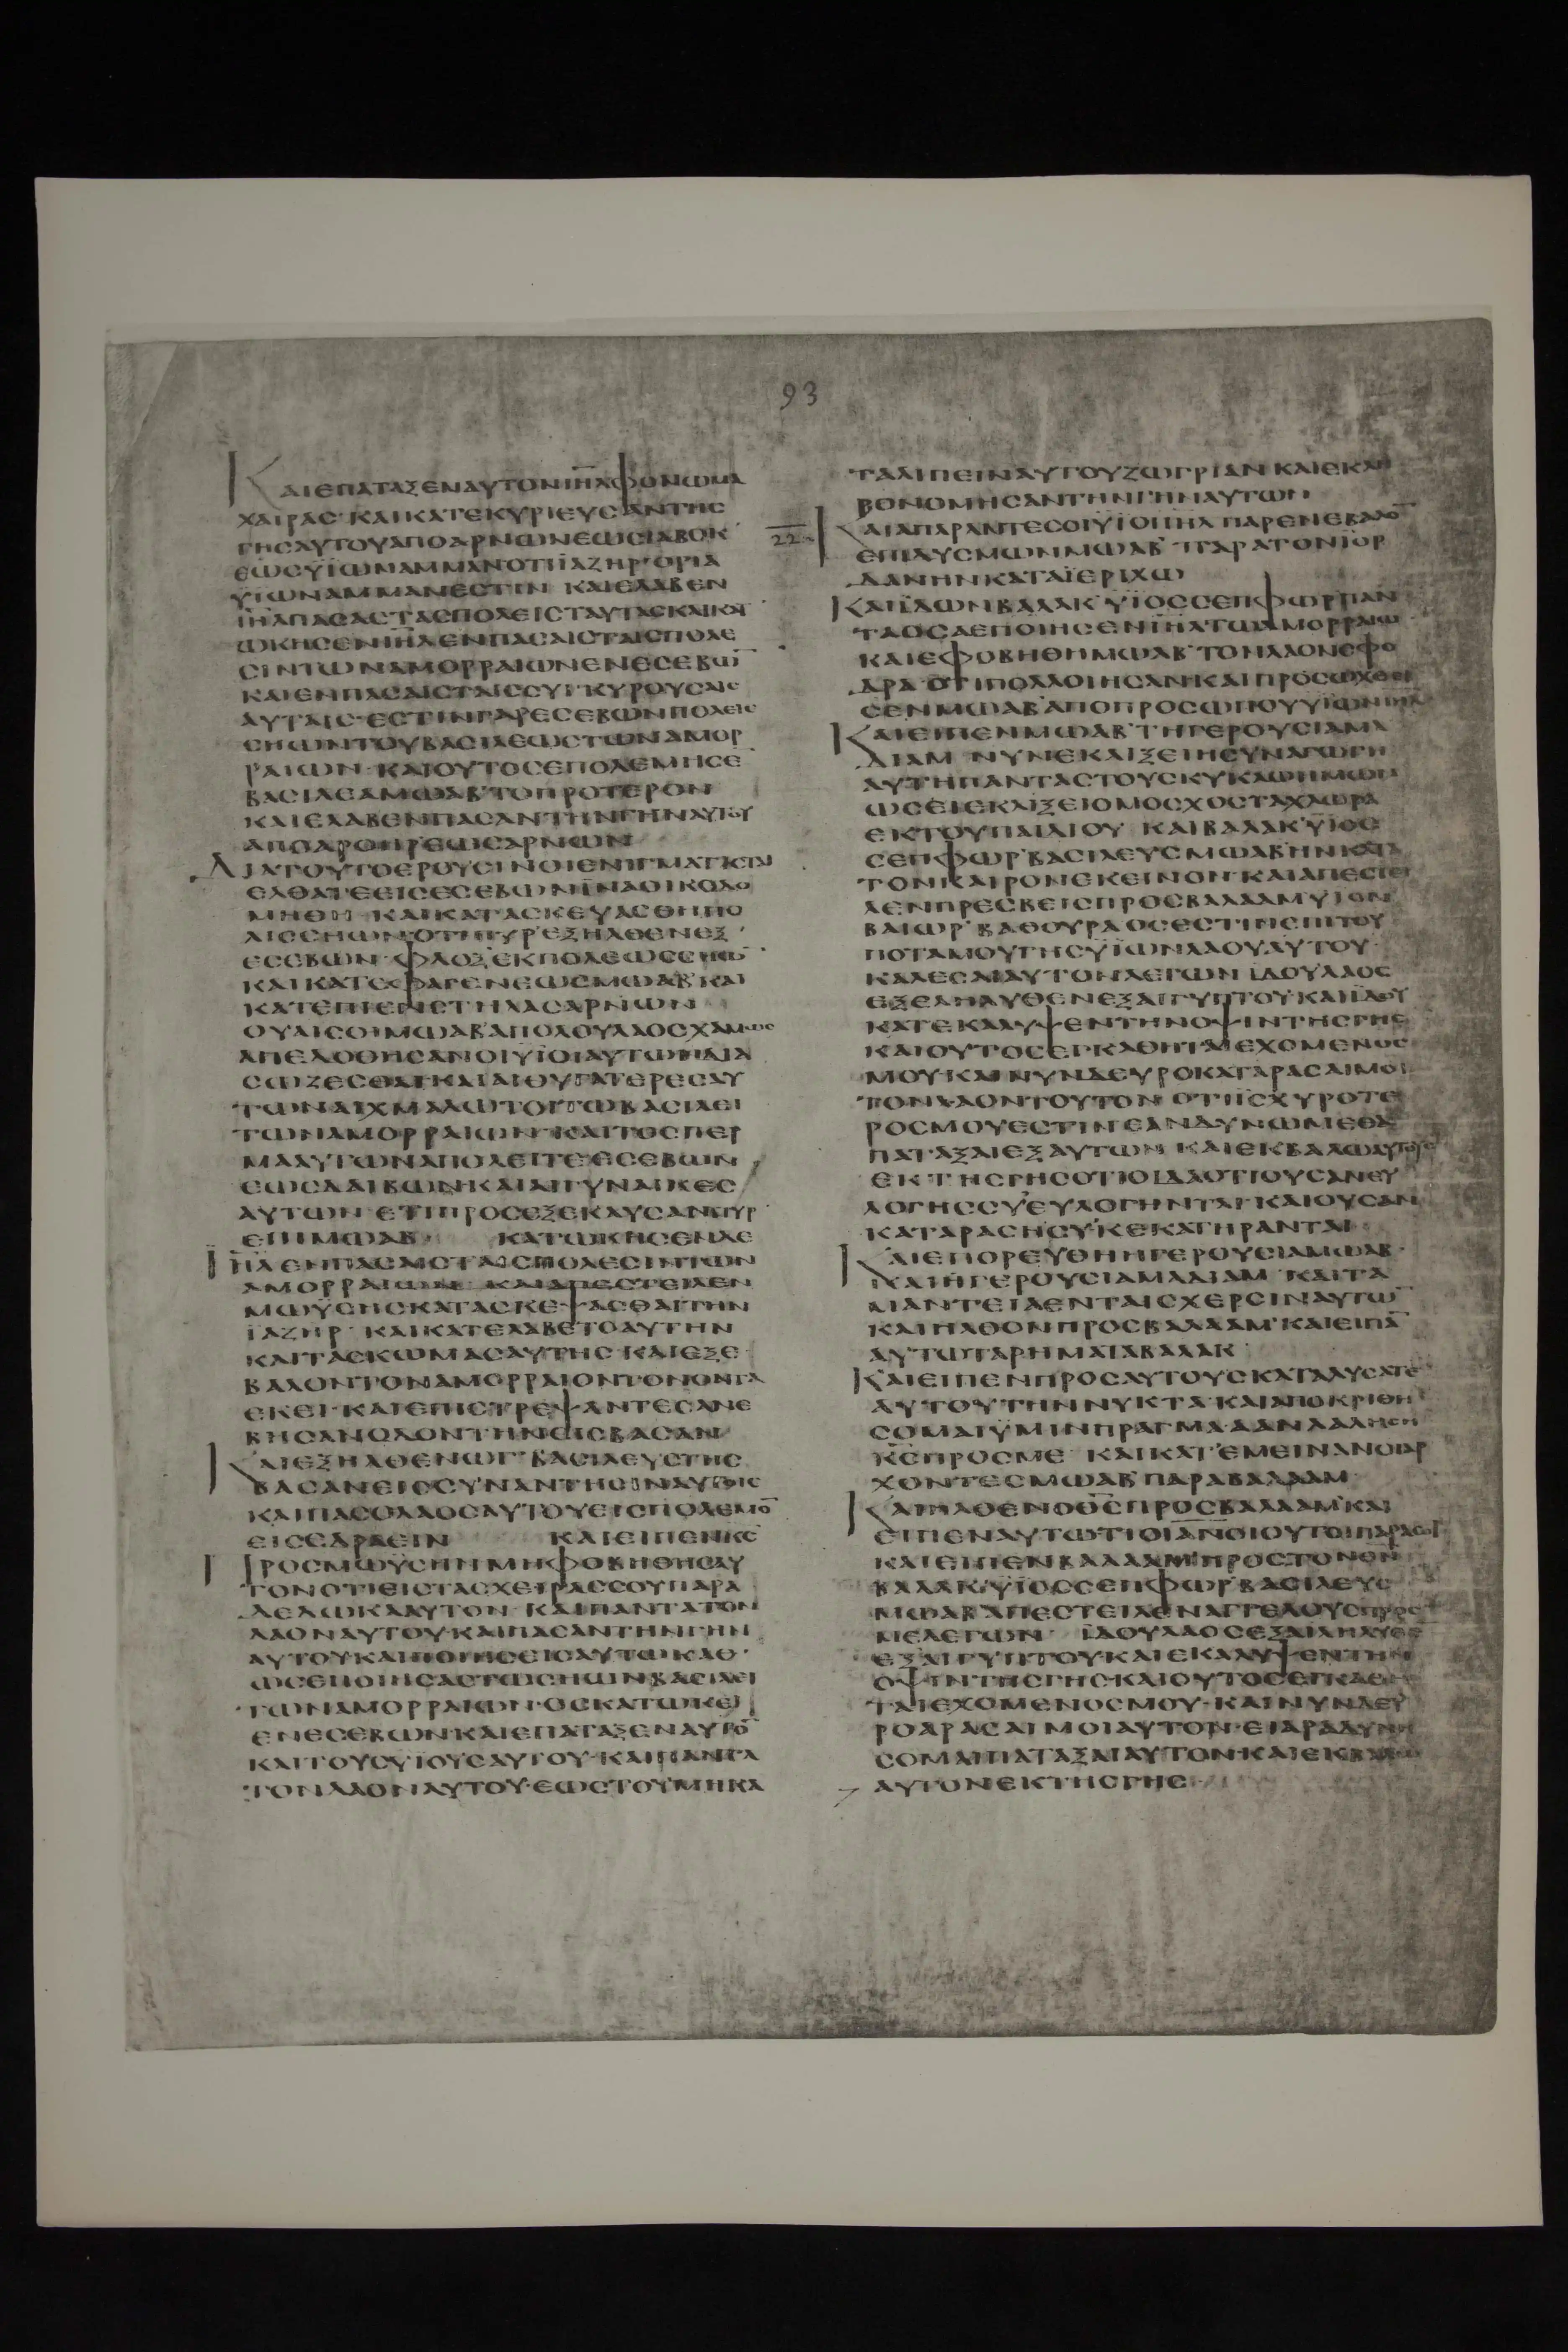 93
ΚΑΙΕΠΑΤΑΞΕΝΑΥΤΟΝΙΗΛΦΟΝΩΜΑ
ΧΑΙΡΑΣ·ΚΑΙΚΑΤΕΚΥΡΙΕΥΣΑΝΤΗΣ
ΓΗΣΑΥΤΟΥΑΠΟΑΡΝΩΝΕΩΣΙΑΒΟΚ
ΕΩΣΫΙΩΝΑΜΜΑΝΟΤΙΪΑΖΗΡ·ΟΡΙΑ
ΥΙΩΝΑΜΜΑΝΕΣΤΙΝ ΚΑΙΕΛΑΒΕΝ
ΙΗΛΠΑΣΑΣΤΑΣΠΟΛΕΙΣΤΑΥΤΑΣΚΑΙΚΑΤ
ΩΚΗΣΕΝΙΗΛΕΝΠΑΣΑΙΣΤΑΙΣΠΟΛΕ
ΣΙΝΤΩΝΑΜΟΡΡΑΙΩΝΕΝΕΣΕΒΩ̅
ΚΑΙΕΝΠΑΣΑΙΣΤΑΙΣΣΥΓΚΥΡΟΥΣΑΙΣ
ΑΥΤΑΙΣ·ΕΣΤΙΝΓΑΡΕΣΕΒΩΝΠΟΛΕΙΣ
ΣΗΩΝΤΟΥΒΑΣΙΛΕΩΣΤΩΝΑΜΟΡ
ΡΑΙΩΝ·ΚΑΙΟΥΤΟΣΕΠΟΛΕΜΗΣΕ
ΒΑΣΙΛΕΑΜΩΑΒΤΟΠΡΟΤΕΡΟΝ
ΚΑΙΕΛΑΒΕΝΠΑΣΑΝΤΗΝΓΗΝΑΥΤΟΥ
ΑΠΟΑΡΟΗΡΕΩΣΑΡΝΩΝ
ΔΙΑΤΟΥΤΟΕΡΟΥΣΙΝΟΙΕΝΙΓΜΑΤΙΣΤΑΙ
ΕΛΘΑΤΕΕΙΣΕΣΕΒΩΝΪΝΑΟΙΚΟΔΟ
ΜΗΘΗ ΚΑΙΚΑΤΑΣΚΕΥΑΣΘΗΠΟ
ΛΙΣΣΗΩΝΟΤΙΠΥΡ·ΕΞΗΛΘΕΝΕΞ
ΕΣΕΒΩΝ·ΦΛΟΞΕΚΠΟΛΕΩΣΣΗΩ̅
ΚΑΙΚΑΤΕΦΑΓΕΝΕΩΣΜΩΑΒΚΑΙ
ΚΑΤΕΠΙΕΝΣΤΗΛΑΣΑΡΝΩΝ
ΟΥΑΙΣΟΙΜΩΑΒΑΠΟΛΟΥΛΑΟΣΧΑΜΩΣ
ΑΠΕΔΟΘΗΣΑΝΟΙΫΙΟΙΑΥΤΩΝΔΙΑ
ΣΩΖΕΣΘΑΙ·ΚΑΙΑΙΘΥΓΑΤΕΡΕΣΑΥ
ΤΩΝΑΙΧΜΑΛΩΤΟΙΤΩΒΑΣΙΛΕΙ
ΤΩΝΑΜΟΡΡΑΙΩΝ·ΚΑΙΤΟΣΠΕΡ
ΜΑΑΥΤΩΝΑΠΟΛΕΙΤΕΕΣΕΒΩΝ
ΕΩΣΔΑΙΒΩΝ·ΚΑΙΑΙΓΥΝΑΙΚΕΣ
ΑΥΤΩΝ·ΕΤΙΠΡΟΣΕΞΕΚΑΥΣΑΝΠΥΡ
ΕΠΙΜΩΑΒ ΚΑΤΩΚΗΣΕΝΔΕ
ΙΗΛΕΝΠΑΣΑΙΣΤΑΙΣΠΟΛΕΣΙΝΤΩΝ
ΑΜΟΡΡΑΙΩΝ· ΚΑΙΑΠΕΣΤΕΙΛΕΝ
ΜΩΫΣΗΣΚΑΤΑΣΚΕΨΑΣΘΑΙΤΗΝ
ΪΑΖΗΡ ΚΑΙΚΑΤΕΛΑΒΕΤΟΑΥΤΗΝ
ΚΑΙΤΑΣΚΩΜΑΣΑΥΤΗΣ·ΚΑΙΕΞΕ
ΒΑΛΟΝΤΟΝΑΜΟΡΡΑΙΟΝΤΟΝΟΝΤΑ
ΕΚΕΙ·ΚΑΙΕΠΙΣΤΡΕΨΑΝΤΕΣΑΝΕ
ΒΗΣΑΝΟΔΟΝΤΗΝΕΙΣΒΑΣΑΝ
ΚΑΙΕΞΗΛΘΕΝΩΓ ΒΑΣΙΛΕΥΣΤΗΣ
ΒΑΣΑΝΕΙΣΣΥΝΑΝΤΗΣΙΝΑΥΤΟΙΣ
ΚΑΙΠΑΣΟΛΑΟΣΑΥΤΟΥΕΙΣΠΟΛΕΜΟ̅
ΕΙΣΕΔΡΑΕΙΝ ΚΑΙΕΙΠΕΝΚΣ
ΠΡΟΣΜΩΫΣΗΝΜΗΦΟΒΗΘΗΣΑΥ
ΤΟΝΟΤΙΕΙΣΤΑΣΧΕΙΡΑΣΣΟΥΠΑΡΑ
ΔΕΔΩΚΑΑΥΤΟΝ·ΚΑΙΠΑΝΤΑΤΟΝ
ΛΑΟΝΑΥΤΟΥ·ΚΑΙΠΑΣΑΝΤΗΝΓΗΝ
ΑΥΤΟΥΚΑΙΠΟΙΗΣΕΙΣΑΥΤΩΚΑΘ
ΩΣΕΠΟΙΗΣΑΣΤΩΣΗΩΝΒΑΣΙΛΕΙ
ΤΩΝΑΜΟΡΡΑΙΩΝ·ΟΣΚΑΤΩΚΕΙ
ΕΝΕΣΕΒΩΝ·ΚΑΙΕΠΑΤΑΞΕΝΑΥΤΟ̅
ΚΑΙΤΟΥΣΥΙΟΥΣΑΥΤΟΥ·ΚΑΙΠΑΝΤΑ
ΤΟΝΛΑΟΝΑΥΤΟΥ·ΕΩΣΤΟΥΜΗΚΑ
ΤΑΛΙΠΕΙΝΑΥΤΟΥΖΩΓΡΙΑΝ
ΒΟΝΟΜΗΣΑΝΤΗΝΓΗΝΑΥΤΩΝ
22
ΚΑΙΑΠΑΡΑΝΤΕΣΟΙΫΙΟΙΙΗΛ ΠΑΡΕΝΕΒΑΛΟ̅
ΕΠΙΔΥΣΜΩΝΜΩΑΒ ΠΑΡΑΤΟΝΪΟΡ
ΔΑΝΗΝΚΑΤΑΪΕΡΙΧΩ
ΚΑΙΪΔΩΝΒΑΛΑΚ ΫΙΟΣΣΕΠΦΩΡΠΑΝ
ΤΑΟΣΑΕΠΟΙΗΣΕΝΙΗΛΤΩΑΜΟΡΡΑΙΩ
ΚΑΙΕΦΟΒΗΘΗΜΩΑΒ ΤΟΝΛΑΟΝΣΦΟ
ΔΡΑ·ΟΤΙΠΟΛΛΟΙΗΣΑΝ·ΚΑΙΠΡΟΣΩΧΘΕΙ
ΣΕΝΜΩΑΒΑΠΟΠΡΟΣΩΠΟΥΥΪΩΝΙΗΛ
ΚΑΙΕΙΠΕΝΜΩΑΒ ΤΗΓΕΡΟΥΣΙΑΜΑ
ΔΙΑΜ ΝΥΝΕΚΛΙΞΕΙΗΣΥΝΑΓΩΓΗ
ΑΥΤΗΠΑΝΤΑΣΤΟΥΣΚΥΚΛΩΗΜΩΝ
ΩΣΕΙΕΚΛΙΞΕΙΟΜΟΣΧΟΣΤΑΧΛΩΡΑ
ΕΚΤΟΥΠΑΙΔΙΟΥ ΚΑΙΒΑΛΑΚ ΫΙΟΣ
ΣΕΠΦΩΡ ΒΑΣΙΛΕΥΣΜΩΑΒΗΝΚΑΤΑ
ΤΟΝΚΑΙΡΟΝΕΚΕΙΝΟΝ·ΚΑΙΑΠΕΣΤΕΙ
ΛΕΝΠΡΕΣΒΕΙΣΠΡΟΣΒΑΛΑΑΜΥΙΟΝ
ΒΑΙΩΡ ΒΑΘΟΥΡΑΟΣΕΣΤΙΝΕΠΙΤΟΥ
ΠΟΤΑΜΟΥΓΗΣΥΪΩΝΛΑΟΥΑΥΤΟΥ
ΚΑΛΕΣΑΙΑΥΤΟΝΛΕΓΩΝ ΙΔΟΥΛΑΟΣ
ΕΞΕΛΗΛΥΘΕΝΕΞΑΙΓΥΠΤΟΥ·ΚΑΙΪΔΟΥ
ΚΑΤΕΚΑΛΥΨΕΝΤΗΝΟΨΙΝΤΗΣΓΗΣ
ΚΑΙΟΥΤΟΣΕΓΚΑΘΗΤΑΙΕΧΟΜΕΝΟΣ
ΜΟΥ·ΚΑΙΝΥΝΔΕΥΡΟΚΑΤΑΡΑΣΑΙΜΟΙ
ΤΟΝΛΑΟΝΤΟΥΤΟΝ ΟΤΙΪΣΧΥΡΟΤΕ
ΡΟΣΜΟΥΕΣΤΙΝΕΑΝΔΥΝΩΜΕΘΑ
ΠΑΤΑΞΑΙΕΞΑΥΤΩΝ ΚΑΙΕΚΒΑΛΩΑΥΤΟΥΣ
ΕΚΤΗΣΓΗΣΟΤΙΟΙΔΑΟΤΙΟΥΣΑΝΕΥ
ΛΟΓΗΣΣΥΕΥΛΟΓΗΝΤΑΙ·ΚΑΙΟΥΣΑΝ
ΚΑΤΑΡΑΣΗΣΥ·ΚΕΚΑΤΗΡΑΝΤΑΙ
ΚΑΙΕΠΟΡΕΥΘΗΗΓΕΡΟΥΣΙΑΜΩΑΒ
ΚΑΙΗΓΕΡΟΥΣΙΑΜΑΔΙΑΜ ΚΑΙΤΑ
ΜΑΝΤΕΙΑΕΝΤΑΙΣΧΕΡΣΙΝΑΥΤΩ̅
ΚΑΙΗΛΘΟΝΠΡΟΣΒΑΛΑΑΜ·ΚΑΙΕΙΠΑ̅
ΑΥΤΩΤΑΡΗΜΑΤΑΒΑΛΑΚ
ΚΑΙΕΙΠΕΝΠΡΟΣΑΥΤΟΥΣΚΑΤΑΛΥΣΑΤΕ
ΑΥΤΟΥΤΗΝΝΥΚΤΑ·ΚΑΙΑΠΟΚΡΙΘΗ
ΣΟΜΑΙΫΜΙΝΠΡΑΓΜΑ·ΑΑΝΛΑΛΗΣΗ
ΚΣΠΡΟΣΜΕ ΚΑΙΚΑΤΕΜΕΙΝΑΝΟΙΑΡ
ΧΟΝΤΕΣΜΩΑΒ ΠΑΡΑΒΑΛΑΑΜ
ΚΑΙΗΛΘΕΝΟΘΣΠΡΟΣΒΑΛΑΑΜ·ΚΑΙ
ΕΙΠΕΝΑΥΤΩΤΙΟΙΑΝΟΙΟΥΤΟΙΠΑΡΑΣΟΙ
ΚΑΙΕΙΠΕΝΒΑΛΑΑΜ ΠΡΟΣΤΟΝΘΝ
ΒΑΛΑΚ·ΫΙΟΣΣΕΠΦΩΡ ΒΑΣΙΛΕΥΣ
ΜΩΑΒ ΑΠΕΣΤΕΙΛΕΝΑΓΓΕΛΟΥΣΠΡΟΣ
ΜΕΛΕΓΩΝ· ΪΔΟΥΛΑΟΣΕΞΕΛΗΛΥΘΕ
ΕΞΑΙΓΥΠΤΟΥΚΑΙΕΚΑΛΥΨΕΝΤΗΝ
ΟΨΙΝΤΗΣΓΗΣ·ΚΑΙΟΥΤΟΣΕΓΚΑΘΗ
ΤΑΙΕΧΟΜΕΝΟΣΜΟΥ·ΚΑΙΝΥΝΔΕΥ
ΡΟΑΡΑΣΑΙΜΟΙΑΥΤΟΝ·ΕΙΑΡΑΔΥΝΗ
ΣΟΜΑΙΠΑΤΑΞΑΙΑΥΤΟΝ·ΚΑΙΕΚΒΑΛΩ
ΑΥΤΟΝΕΚΤΗΣΓΗΣ